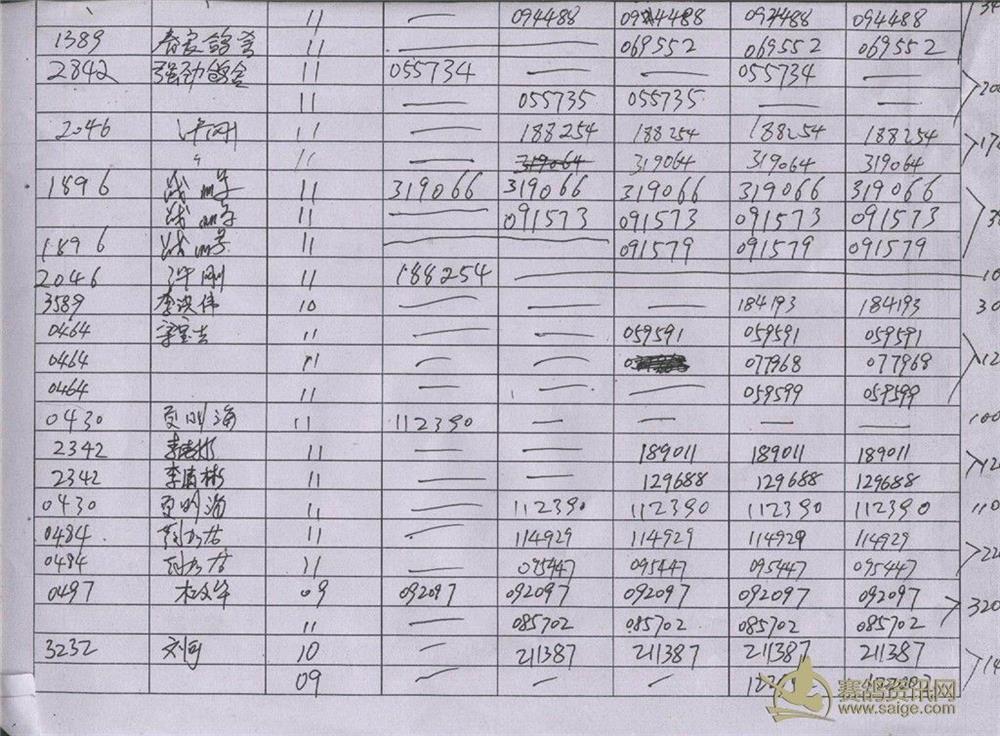 11 — 094488 094488 094488 094488
1389 春家鸽舍 — 069552 069552 069552
2842 强劲鸽舍 11 055734 — — 055734 —
11 — 055735 055735 — —
2046 许刚 11 — 188254 188254 188254 188254
〃 11 — 319064 319064 319064 319064
1896 11 319066 319066 319066 319066 319066
11 — 091573 091573 091573 091573
1896 11 — 091579 091579 091579
2046 许刚 11 188254 —
3589 李洪伟 10 — — — 184193 184193
0464 11 — — 059591 059591 059591
0464 11 — — 077968 077968
0464 11 — — — 059599 059599
0430 11 112390 — — — —
2342 11 — — 189011 189011 189011
2342 11 — — 129688 129688 129688
0430 11 — 112390 112390 112390 112390
0484 11 — 114929 114929 114929 114929
0484 11 — 095447 095447 095447 095447
0497 09 092097 092097 092097 092097 092097 320
11 — 085702 085702 085702 085702
3232 10 — 211387 211387 211387 211387
09 — — —
赛鸽资讯网
www.saige.com